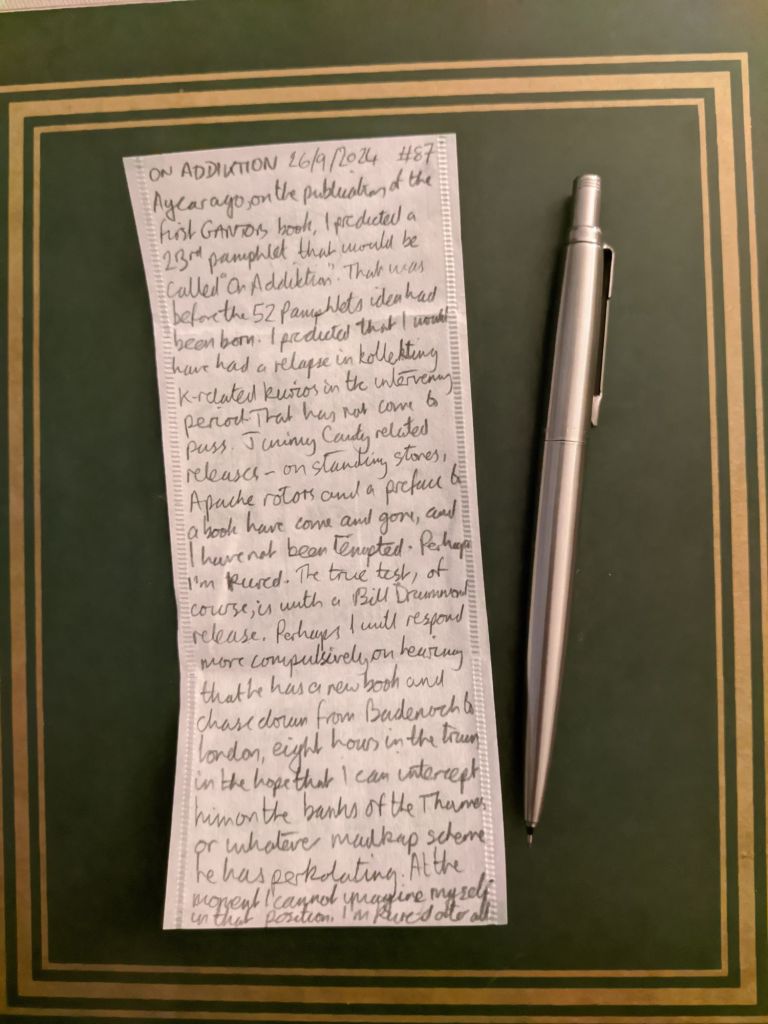 ON ADDIKTION 26/9/2024 #87
A year ago, on the publication of the
first GANTOB book, I predicted a
23rd pamphlet that would be
called "On Addiktion". That was
before the 52 Pamphlets idea had
been born. I predicted that I would
have had a relapse in kollekting
K-related kurios in the intervening
period. That has not come to
pass. Jimmy Cauty related
releases – on standing stones,
Apache rotors and a preface to
a book have come and gone, and
I have not been tempted. Perhaps
I'm kured. The true test, of
course, is with a Bill Drummond
release. Perhaps I will respond
more compulsively, on hearing
that he has a new book and
chase down from Badenoch to
London, eight hours in the train
in the hope that I can intercept
him on the banks of the Thames
or whatever madkap scheme
he has perkolating. At the
moment I cannot imagine myself
in that position. I'm kured after all